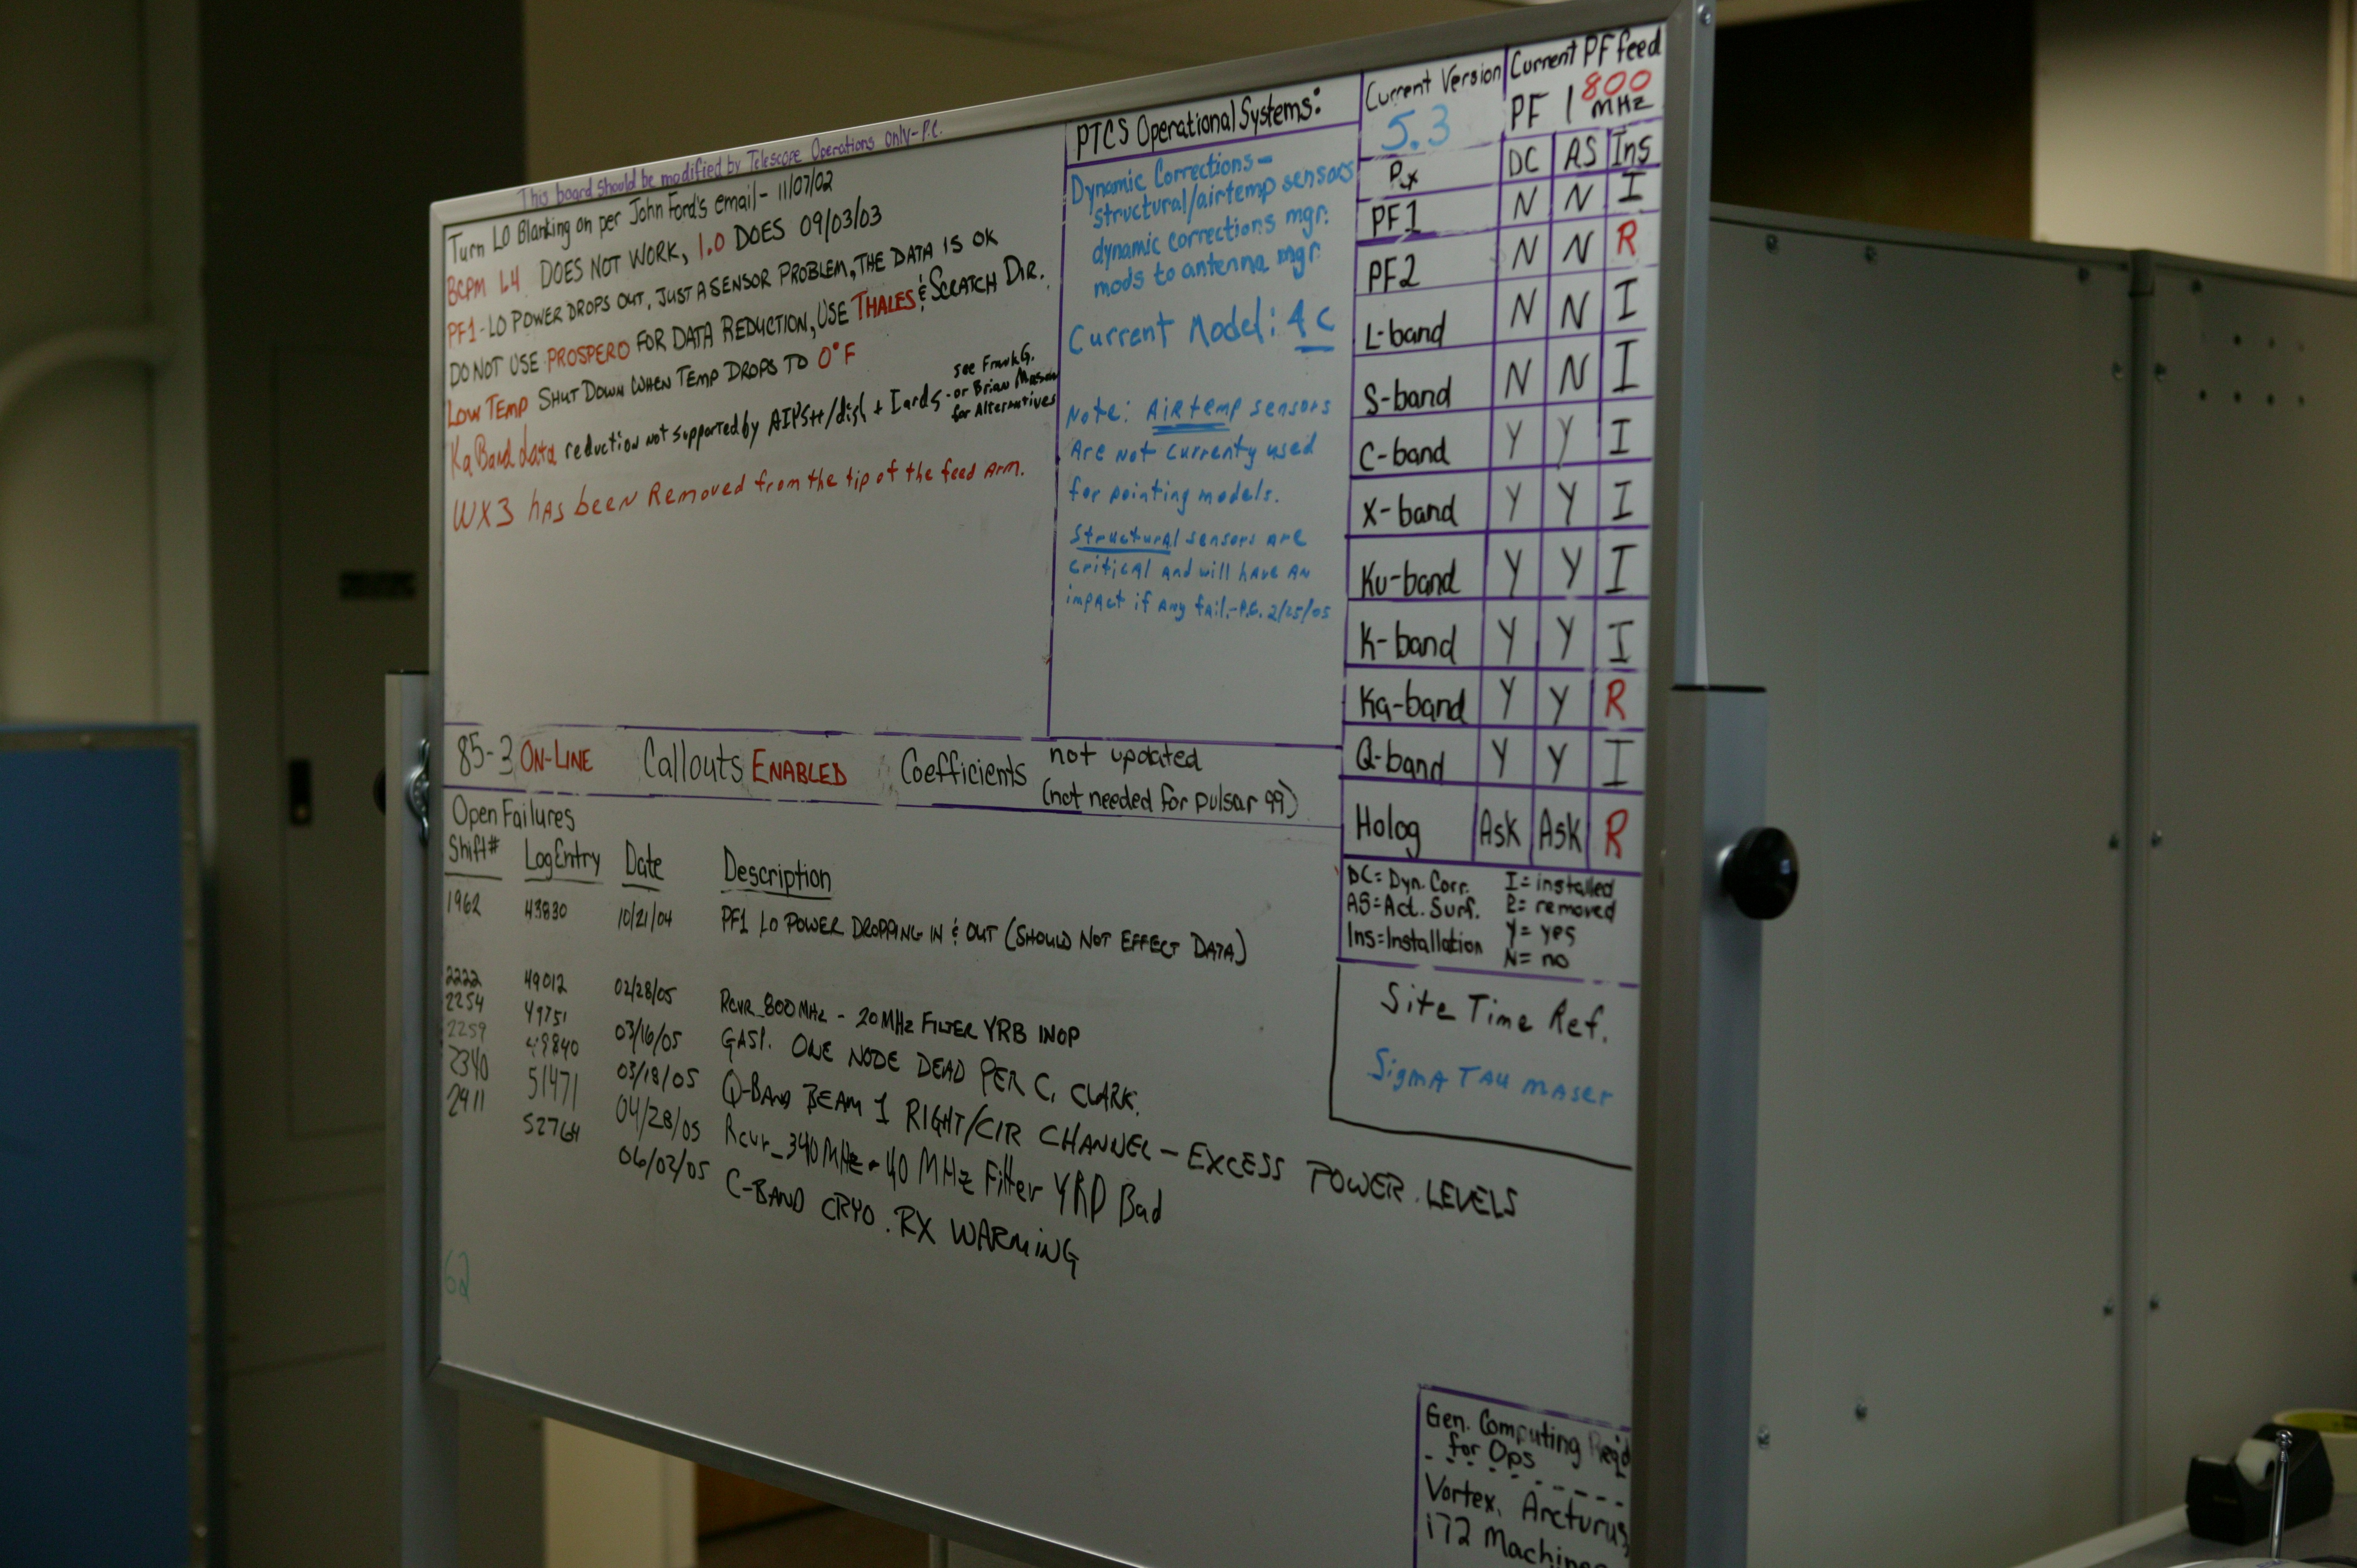 This board should be modified by Telescope Operations only-P.C.
Turn LO Blanking on per John Ford's email - 11/07/02
BCPM L4 DOES NOT WORK, 1.0 DOES 09/03/03
PF1 - LO POWER DROPS OUT, JUST A SENSOR PROBLEM, THE DATA IS OK
DO NOT USE PROSPERO FOR DATA REDUCTION, USE THALES & SCRATCH DIR.
LOW TEMP SHUT DOWN WHEN TEMP DROPS TO 0°F
Ka Band data reduction not supported by AIPS++/dish + Iards - see Frank G.
or Brian
for Alternatives
WX3 hAs been Removed from the tip of the feed Arm.
PTCS Operational Systems:
Dynamic Corrections -
structural/airtemp sensors
dynamic corrections mgr.
mods to antenna mgr.
Current Model: 4c
Note: AiRtemp sensors
Are Not currenty used
for pointing models.
Structural sensors Are
critical and will have AN
impact if Any fail.-P.C. 2/25/05
Current Version
5.3
Current PF feed
PF 1 800 MHz
Rx DC AS Ins
PF1 N N I
PF2 N N R
L-band N N I
S-band N N I
C-band Y Y I
X-band Y Y I
Ku-band Y Y I
K-band Y Y I
Ka-band Y Y R
Q-band Y Y I
Holog Ask Ask R
DC = Dyn. Corr. I = installed
AS = Act. Surf. R = removed
Ins = Installation Y = yes
N = no
85-3 ON-LINE Callouts ENABLED Coefficients not updated
(not needed for pulsar 99)
Open Failures
Shift# Log Entry Date Description
1962 43830 10/21/04 PF1 LO POWER DROPPING IN & OUT (SHOULD NOT EFFECT DATA)
2222 49012 02/28/05 RCVR_800MHz - 20MHz FILTER YRB INOP
2254 49751 03/16/05 GASP. ONE NODE DEAD PER C. CLARK.
2259 49840 03/18/05 Q-BAND BEAM 1 RIGHT/CIR CHANNEL - EXCESS POWER LEVELS
2340 51471 04/28/05 Rcvr_340MHz - 40 MHz Filter YRD Bad
2411 52764 06/02/05 C-BAND CRYO. RX WARMING
62
Site Time Ref.
Sigma TAU MAser
Gen. Computing Req'd
for Ops
Vortex, Arcturus,
i72 Machines